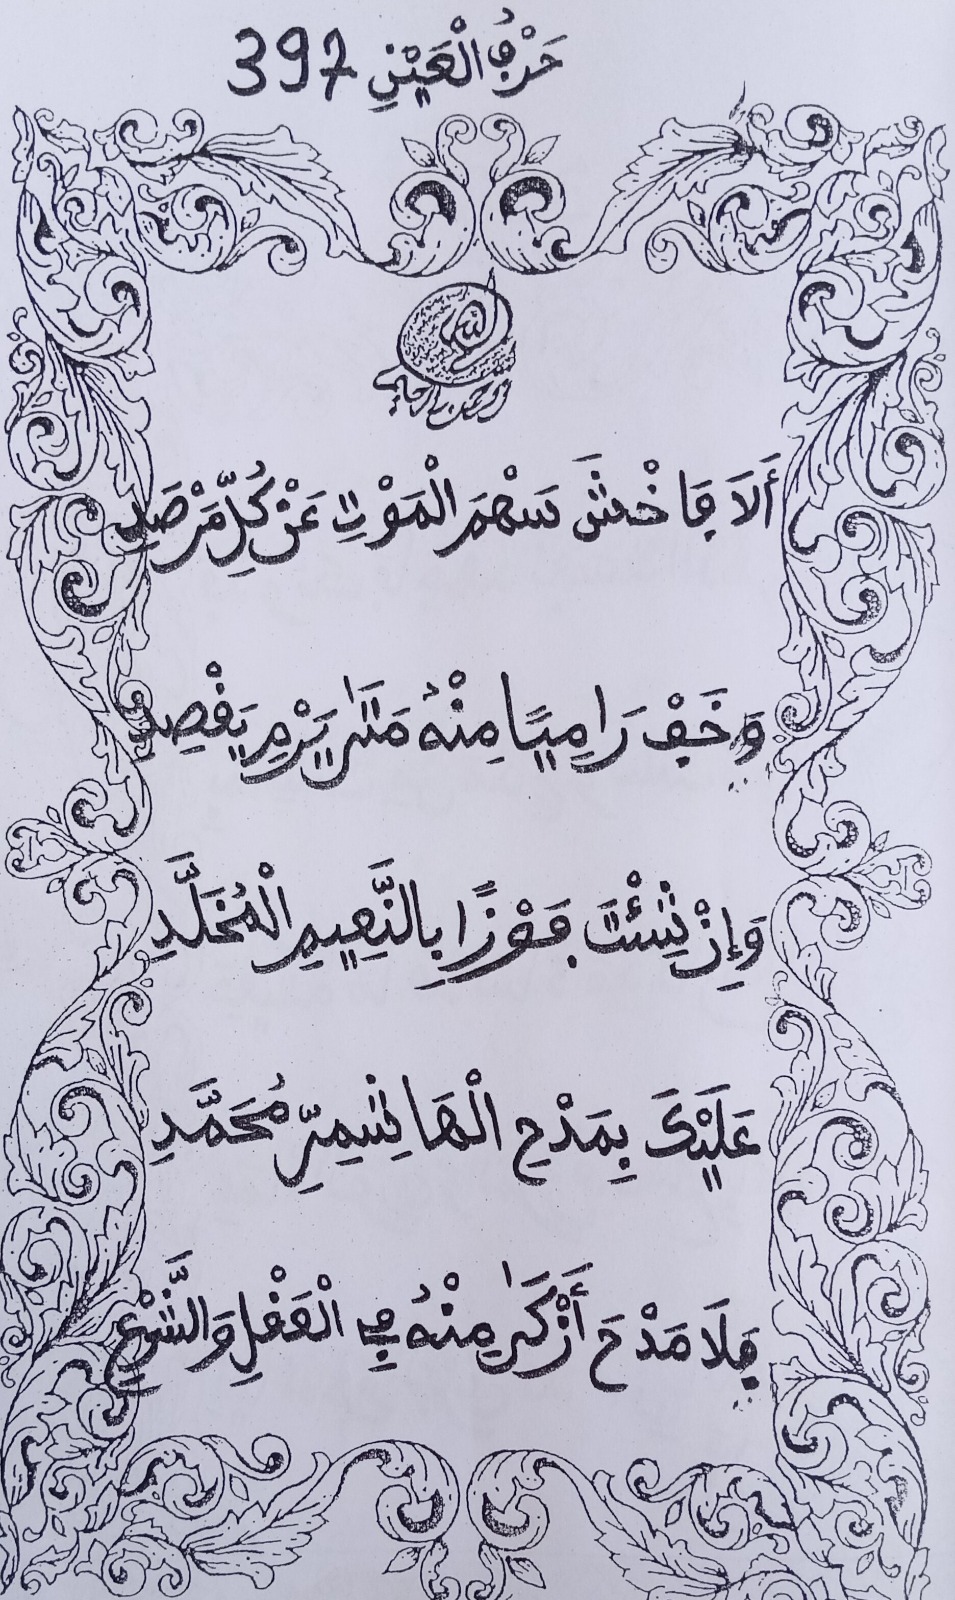 حَرْفُ الْعَيْنِ 397
أَلَا فَاخْشَ سَهْمَ الْمَوْتِ عَنْ كُلِّ مَرْصَدِ
وَخَفْ رَامِيًا مِنْهُ مَتَى يَرْمِ يَقْصِدِ
وَإِنْ شِئْتَ فَوْزًا بِالنَّعِيمِ الْمُخَلَّدِ
عَلَيْكَ بِمَدْحِ الْهَاشِمِيِّ مُحَمَّدِ
فَلَا مَدْحَ أَزْكَى مِنْهُ فِي الْعَقْلِ وَالشَّرْعِ